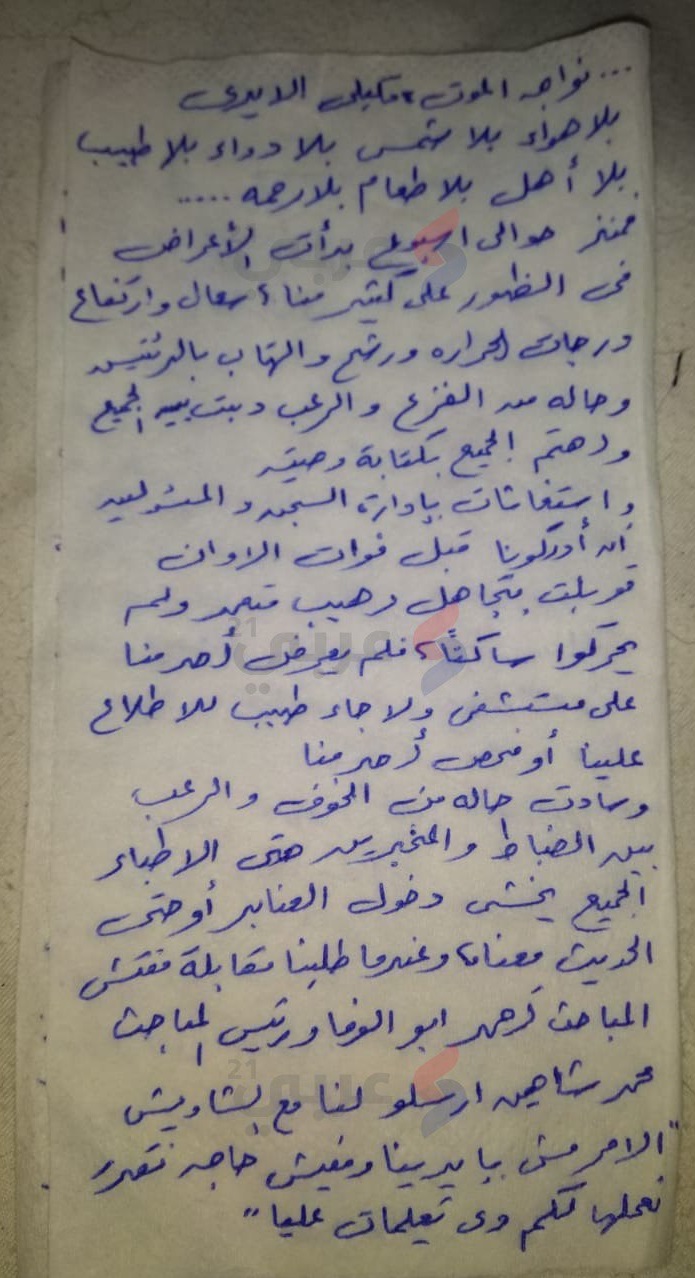 ... نواجه الموت، مكبلى الايدى
بلا هواء بلا شمس بلا دواء بلا طبيب
بلا أهل بلا طعام بلا رحمه .....
فمنذ حوالى اسبوع بدأت الأعراض
فى الظهور على كثير منا، سعال وارتفاع
درجات الحراره ورشح والتهاب بالرئتين
وحاله من الفزع والرعب دبت بين الجميع
واهتم الجميع بكتابة وصيته
واستغاثات بإدارة السجن والمسئولين
أن أدركونا قبل فوات الاوان
قوبلت بتجاهل رهيب متعمد ولم
يحركوا ساكناً، فلم يعرض أحد منا
على مستشفى ولا جاء طبيب للاطلاع
علينا أو فحص أحد منا
وسادت حاله من الخوف والرعب
بين الضباط والمخبرين حتى الاطباء
الجميع يخشى دخول العنابر أو حتى
الحديث معنا، وعندما طلبنا مقابلة مفتش
المباحث احمد ابو الوفا ورئيس المباحث
محمد شاهين ارسلو لنا مع الشاويش
"الامر مش بايدينا ومفيش حاجه نقدر
نعملها لكم دى تعليمات عليا"
عربي 21
عربي 21
عربي 21